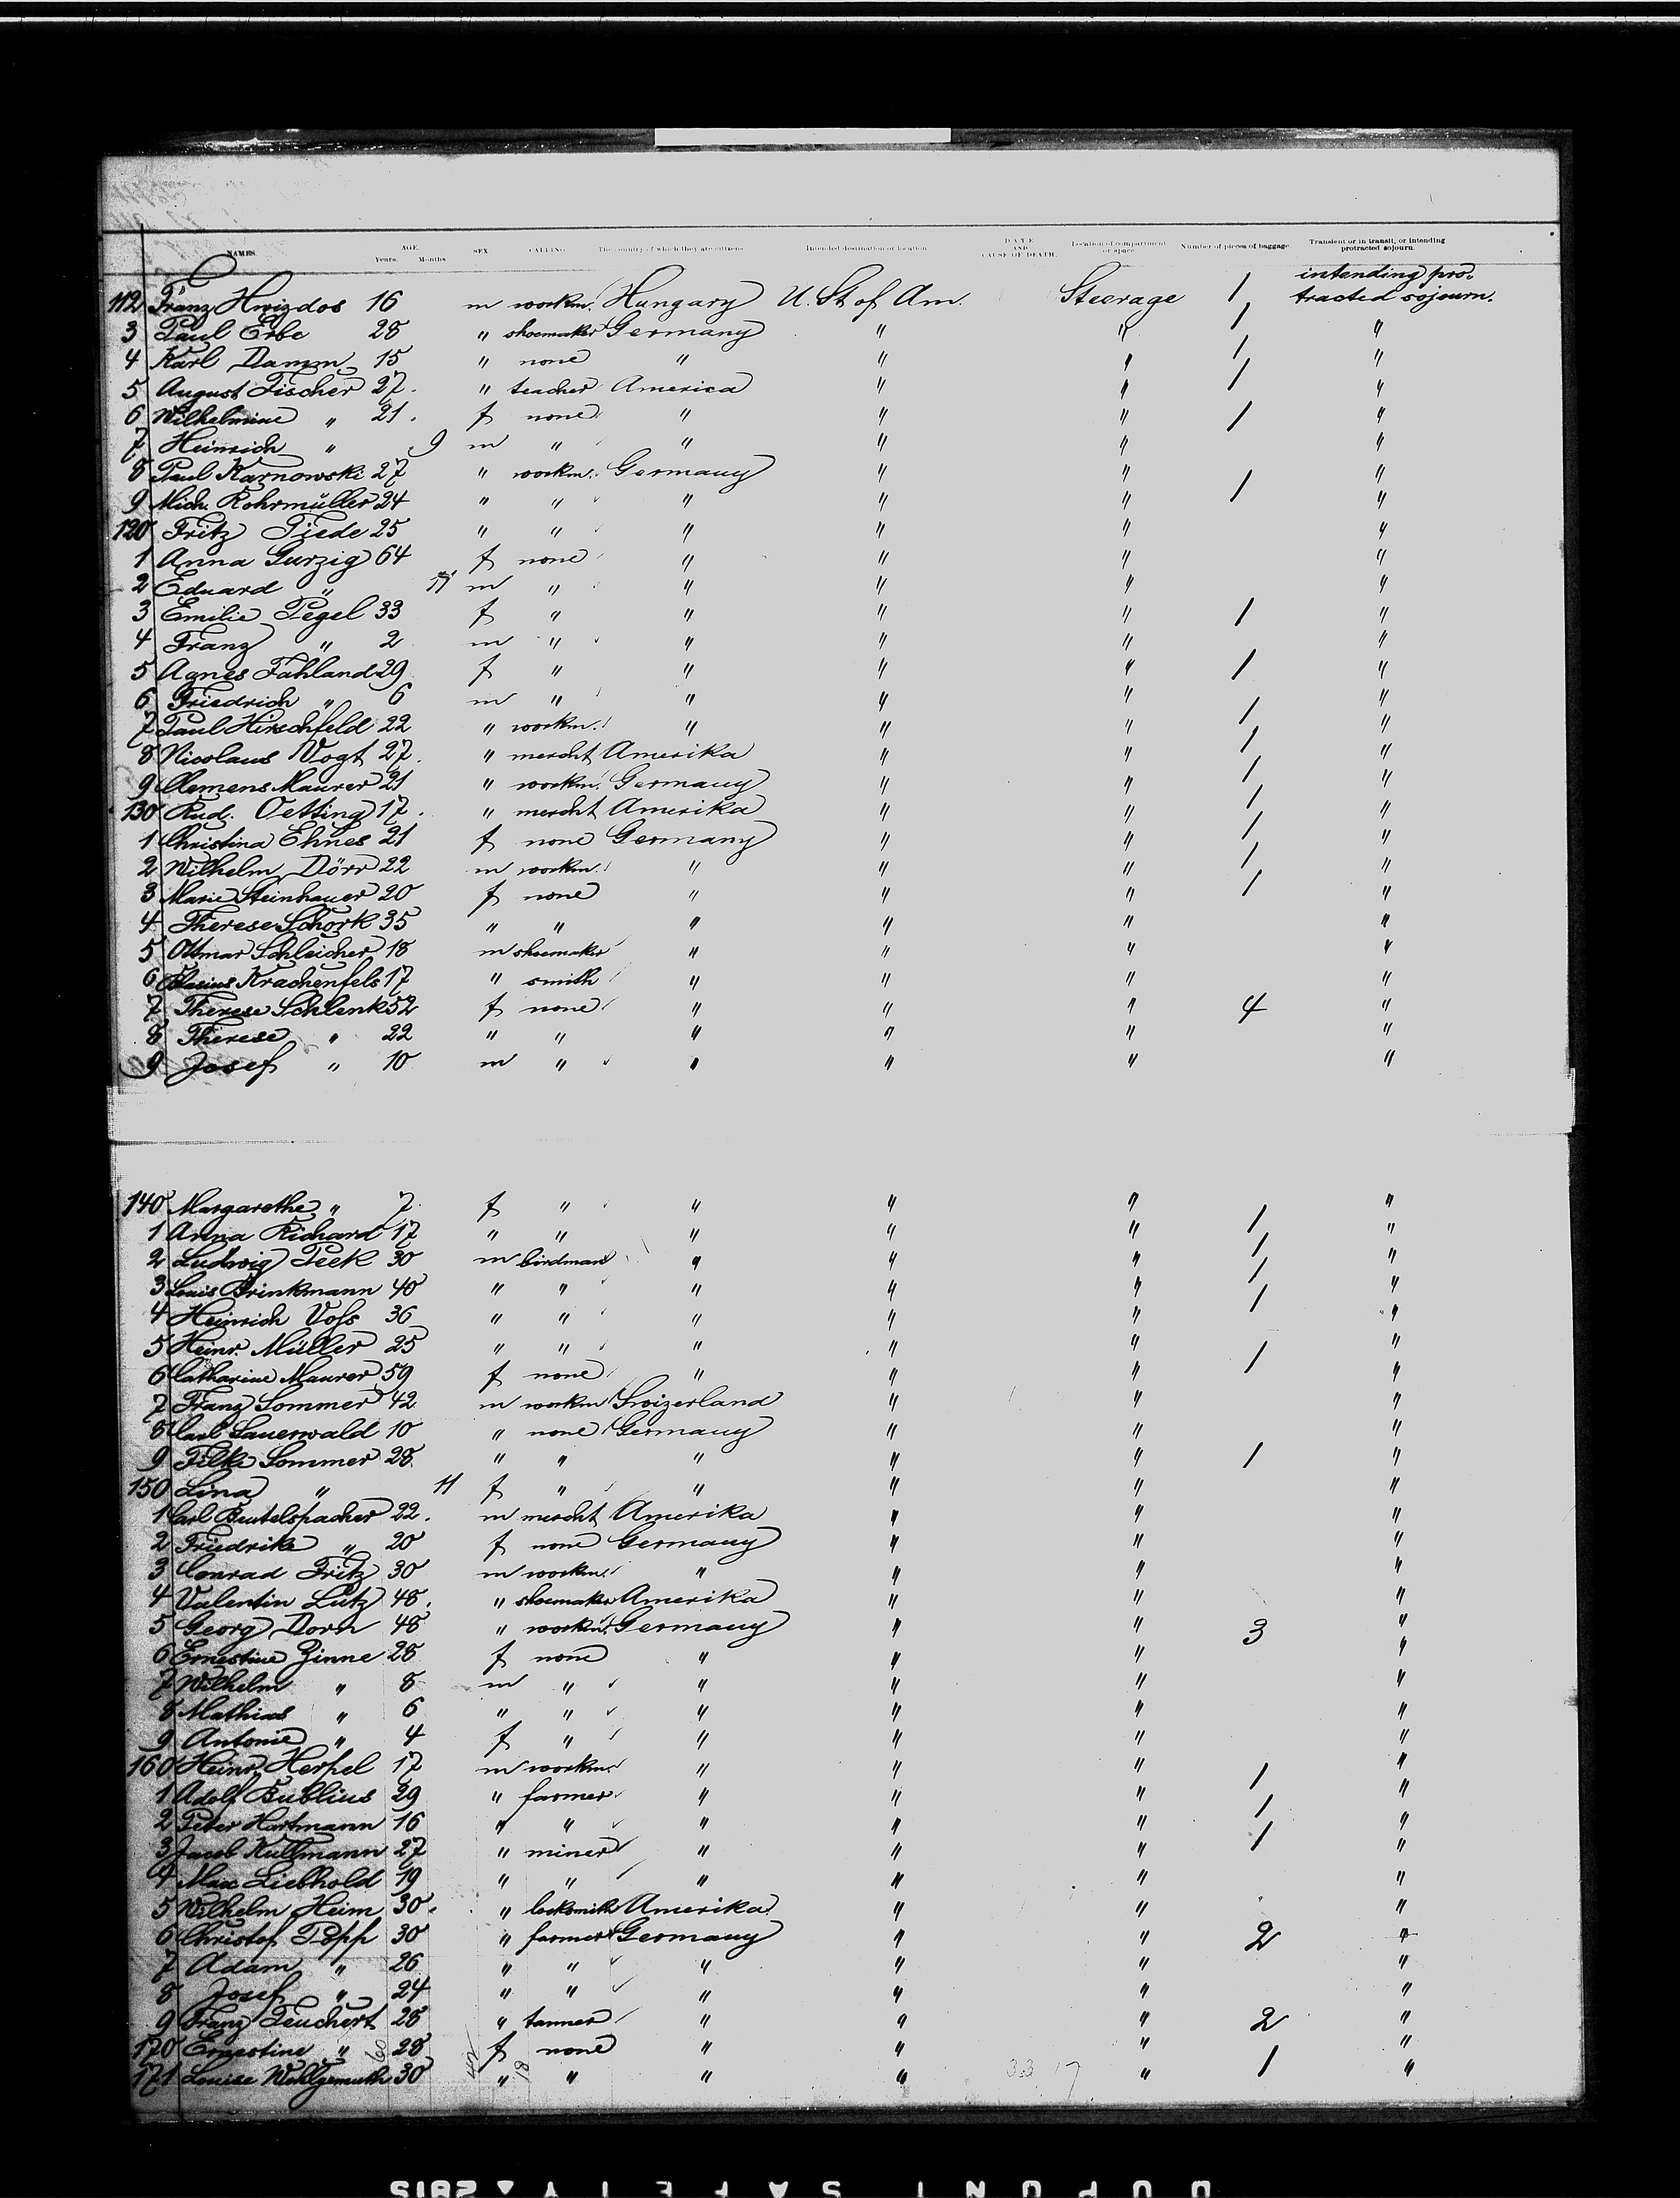 NAMES. AGE. Years. Months SEX CALLING The country of which they are citizens Intended destination or location DATE AND CAUSE OF DEATH. Location of compartment or space Number of pieces of baggage Transient or in transit, or intending protracted sojourn.
intending pro-
112 Franz Hwizdos 16 m workm. Hungary U. St of Am. Steerage 1 tracted sojourn.
3 Paul Erbe 28 " shoemaker Germany " " 1 "
4 Karl Damm 15 " none " " " 1 "
5 August Fischer 27. " teacher America " " 1 "
6 Wilhelmine " 21. f none " " " 1 "
7 Heinrich " 9 m " " " " "
8 Paul Karnowski 27 " workm. Germany " " "
9 Mich. Rohrmüller 24 " " " " " 1 "
120 Fritz Tiede 25 " " " " " "
1 Anna Gurzig 64 f none " " " "
2 Eduard " 11 m " " " " "
3 Emilie Pegel 33 f " " " " 1 "
4 Franz " 2 m " " " " "
5 Agnes Fahland 29 f " " " " 1 "
6 Friedrich " 6 m " " " " "
7 Paul Hirschfeld 22 " workm. " " " 1 "
8 Nicolaus Vogt 27. " mercht Amerika " " 1 "
9 Clemens Maurer 21 " workm. Germany " " 1 "
130 Rud. Oetting 17. " mercht Amerika " " 1 "
1 Christina Ehnes 21 f none Germany " " 1 "
2 Wilhelm Dörr 22 m workm. " " " 1 "
3 Marie Steinhauer 20 f none " " " 1 "
4 Therese Schork 35 " " " " " "
5 Ottmar Schleicher 18 m shoemaker " " " "
6 Blasius Krachenfels 17 " smith " " " "
7 Therese Schlenk 52 f none " " " 4 "
8 Therese " 22 " " " " " "
9 Josef " 10 m " " " " "
140 Margarethe " 7 f " " " " "
1 Anna Richard 17 " " " " " 1 "
2 Ludwig Peek 30 m birdman " " " 1 "
3 Louis Brinkmann 40 " " " " " 1 "
4 Heinrich Voss 36 " " " " " 1 "
5 Heinr. Müller 25 " " " " " "
6 Catharine Maurer 59 f none " " " 1 "
7 Franz Sommer 42 m workm Swizerland " " "
8 Carl Sauerwald 10 " none Germany " " "
9 Filke Sommer 28 " " " " " 1 "
150 Lina " 11 f " " " " "
1 Carl Beutelspacher 22. m mercht Amerika " " "
2 Friedrike " 20 f none Germany " " "
3 Conrad Fritz 30 m workm. " " " "
4 Valentin Lutz 48. " shoemaker Amerika " " "
5 Georg Dorn 48 " workm. Germany " " 3 "
6 Ernestine Zinne 28 f none " " " "
7 Wilhelm " 8 m " " " " "
8 Mathias " 6 " " " " " "
9 Antonie " 4 f " " " " "
160 Heinr. Herpel 17 m workm. " " " 1 "
1 Adolf Bublius 29 " farmer " " " 1 "
2 Peter Hartmann 16 " " " " " 1 "
3 Jacob Kullmann 27 " miner " " " "
4 Max Liebhold 19 " " " " " "
5 Wilhelm Heim 30. " locksmith Amerika " " "
6 Christof Popp 30 " farmer Germany " " 2 "
7 Adam " 26 " " " " " "
8 Josef " 24 " " " " " "
9 Franz Teuchert 28 " tanner " " " 2 "
170 Ernestine " 28 f none " " " "
171 Louise Wohlgemuth 30 " " " " " 1 "
60 42 18 33 17
DUPONT SAFETY 2815